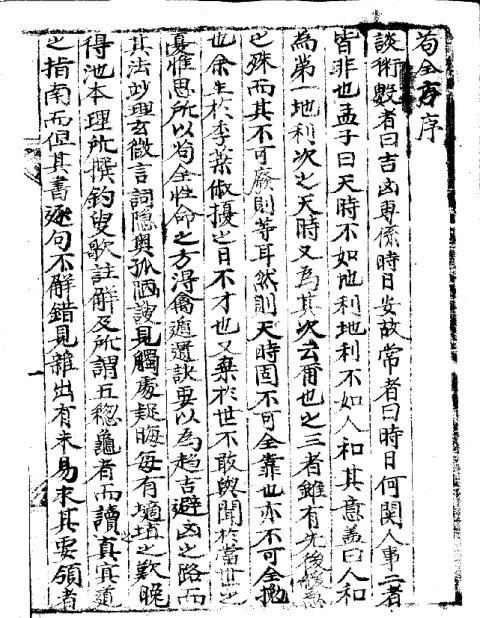 苟全方序
談術數者曰吉凶專係時日安故常者曰時日何関人事二者
皆非也孟子曰天時不如地利地利不如人和其意盖曰人和
為第一地利次之天時又為其次云甯也之三者雖有先後緩急
之殊而其不可廢則等耳然則天時固不可全靠也亦不可全抛
也余生於季葉俶擾之日不才也又棄於世不敢與聞於當世之
憂惟思所以苟全性命之方得喬遁遁訣要以為趍吉避凶之路而
其法妙理玄微言詞隱奥孤陋謏見觸處疑晦每有擿埴之歎晚
得池本理所撰釣叟歌註解及所謂五總龜者而讀真冥道
之指南而但其書逐句不解錯見雜出有未易求其要領者